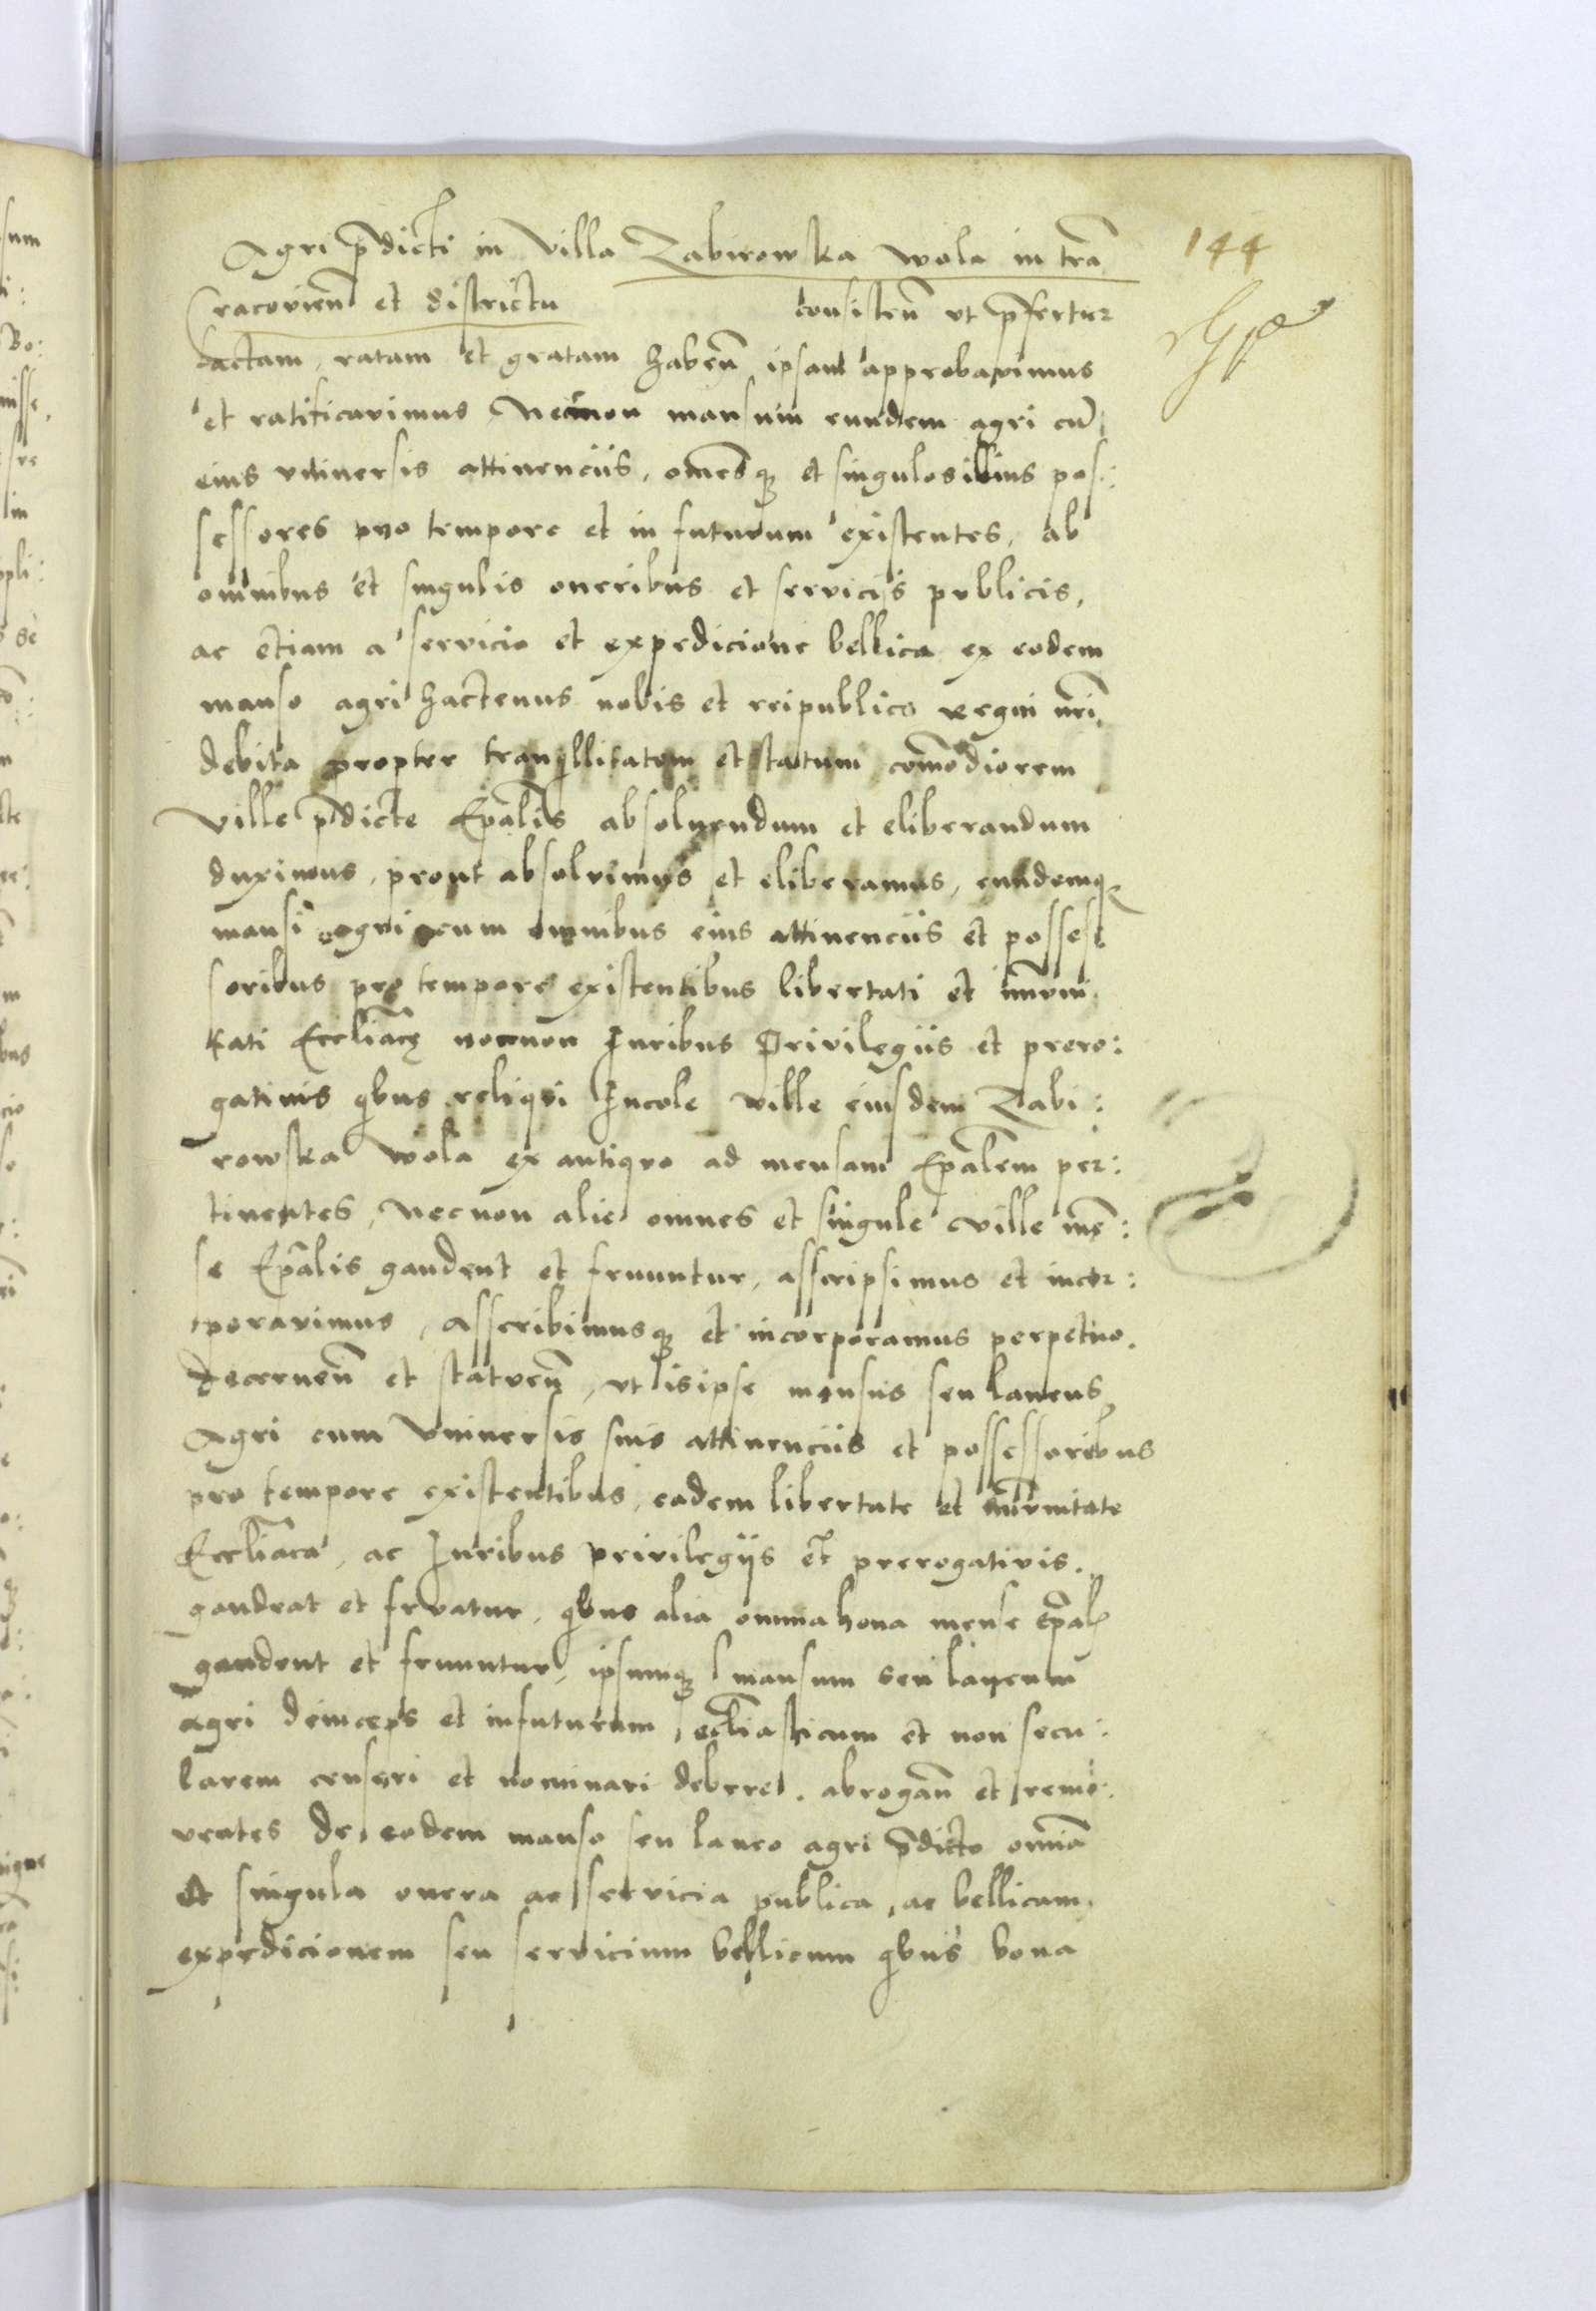 Agri p̄dicti in villa Zabirowska wola in trā
Cracovien̄ et districtu consisten̄ vt p̄fertur
factam, ratam et gratam haben̄ ipsam approbavimus
et ratificavimus, Necnon mansum eundem agri cū
eius vniuersis attinenciis, om̄esq3 et singulos illius pos:
sessores pro tempore et in futurum existentes, ab
omnibus et singulis oneribus et serviciis publicis,
ac etiam a servicio et expedicione bellica ex eodem
manso agri hactenus nobis et reipublice regni nr̄i
debita propter tranqillitatem et statum com̄odiorem
ville p̄dicte Ep̄alis absoluendum et eliberandum
duximus, prout absolvimus et eliberamus, eundemq3
mansū agri cum omnibus eius attinenciis et posses:
soribus pro tempore existentibus libertati et im̄uni
tati Eccl̄iacę necnon Iuribus Privilegiis et prero:
gativis qbus reliqui Incole ville eiusdem Zabi:
rowska wola ex antiquo ad mensam Ep̄alem per:
tinentes, Necnon alie omnes et singule ville mē:
se Ep̄alis gaudent et fruuntur, asscripsimus et incor:
poravimus, asscribimusq3 et incorporamus perpetuo.
decernen̄ et statuen̄, vt is ipse mansus seu laneus
Agri cum Vniuersis suis attinenciis et possessoribus
pro tempore existentibus, eadem libertate et im̄unitate
Eccl̄iaca, ac Iuribus privilegijs et prerogativis.
gaudeat et fruatur, qbus alia omnia bona mense Ep̄alꝭ
gaudent et fruuntur, ipsumq3 mansum seu laneum
agri deinceps et in futurum, eccl̄iasticum et non secu:
larem censeri et nominari debere. abrogan̄ et remo:
ventes de eodem manso seu laneo agri p̄dicto om̄ia
et singula onera ac servicia publica, ac bellicam
expedicionem seu servicium bellicum qbus bona
144